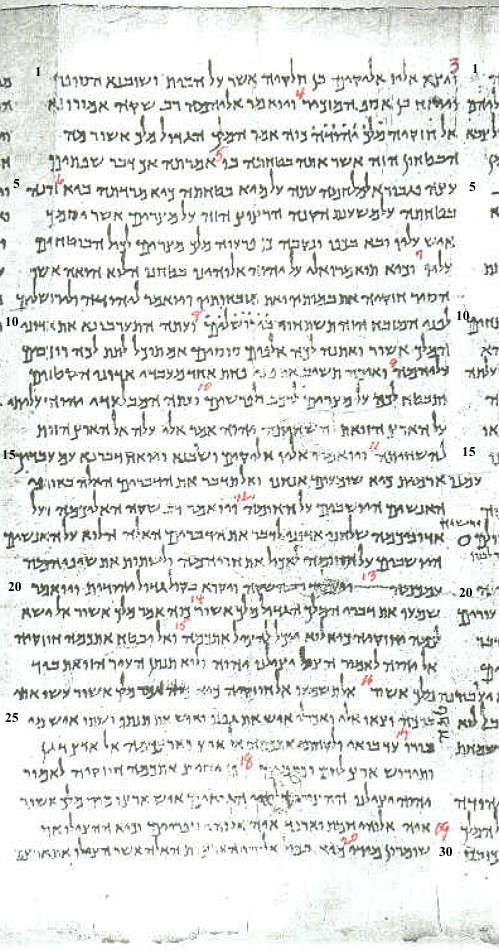 1 3 ויצא אליו אליקים בן חלקיה אשר על הבית ושובנא הסופר 1
ויואח בן אסף המזכיר 4 ויואמר אליהמה רב שקה אמורו נא
אל חוקיה מלך יהודה כוה אמר המלך הגדול מלך אשור מה
הבטחון הזה אשר אתה בטחתה בו 5 אמרתה אך דבר שפתים
5 עצה וגבורא למלחמה עתה על מיא בטחתה כיא מרדתה ביא 6 הנה 5
בטחתה על משענת הקנה הרצוץ הזה על מצרים אשר יסמך
איש עליו ובא בכפו ונקבה כן פרעוה מלך מצרים לכול הבוטחים
עליו 7 וכיא תואמרו אלי על יהוה אלוהינו בטחנו הלוא הואה אשר
הסיר חוזקיה את במותיו ואת מזבחותיו ויואמר ליהודה ולירושלים
10 לפני המזבח הזה תשתחוו בירושלים 8 ועתה התערבו נא את אדוני 10
המלך אשור ואתנה לכה אלפים סוסים אם תוכל לתת לכה רוכבים
עליהמה 9 ואיכה תשיב את פני פחת אחד מעבדי אדוני הקטנים
ותבטח לכה על מצרים לרכב ולפרשים 10 ועתה המבלעדי יהוה עליתי
על הארץ הזואת להשחיתה יהוה אמר אלי עלה אל הארץ הזות
15 להשחיתה 11 ויואמרו אליו אליקים ושובנא ויואח דברנא עם עבדיך 15
עמנו ארמית כיא שומעים אנחנו ואל תדבר את הדברים האלה באוזני
האנשים היושבים על החומה 12 ויואמר רב שקה האליכמה ועל
אדוניכמה שלחני אדוני לדבר את הדברים האלה הלוא על האנשים
היושבים על החומה לאכול את חריהמה ולשתות את שיניהמה
20 עמכמה 13 ויעמוד רב שקה ויקרא בקול גדול יהודית ויואמר 20
שמעו את דברי המלך הגדול מלך אשור 14 כוה אמר מלך אשור אל ישא
לכמה חוזקיה כיא לוא יוכל להציל אתכמה 15 ואל יבטח אתכמה חוזקיה
אל יהוה לאמור הצל יצילנו יהוה ולוא תנתן העיר הזואת ביד
מלך אשור 16 אל תשמעו אל חוזקיה כיא כוה אמר מלך אשור עשו אתי
25 ברכה וצאו אלי ואכלו איש את גפנו ואיש את תאנתו ושתו איש מי
בורו 17 עד בואי ולקחתי אתכמה אל ארץ כארצכמה אל ארץ דגן
ותירוש ארץ לחם וכרמים 18 פן יסית אתכמה חוזקיה לאמור
יהוה יצילנו ההצילו אלוהי הגואים איש ארצו מיד מלך אשור
19 איה אלוהי חמת וארפד איה אלוהי ספרים וכיא ההצילו את
שומרון מידי 20 מיא בכול אלוהי הארצות האלה אשר הצילו את 30